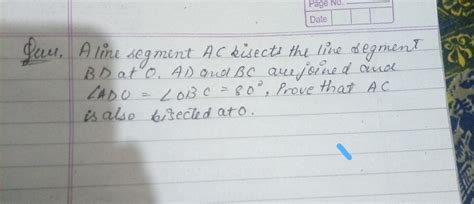 Page No.
Date
Ques. A line segment AC bisects the line segment
BD at O. AD and BC are joined and
∠ADO = ∠OBC = 80°, Prove that AC
is also bisected at O.